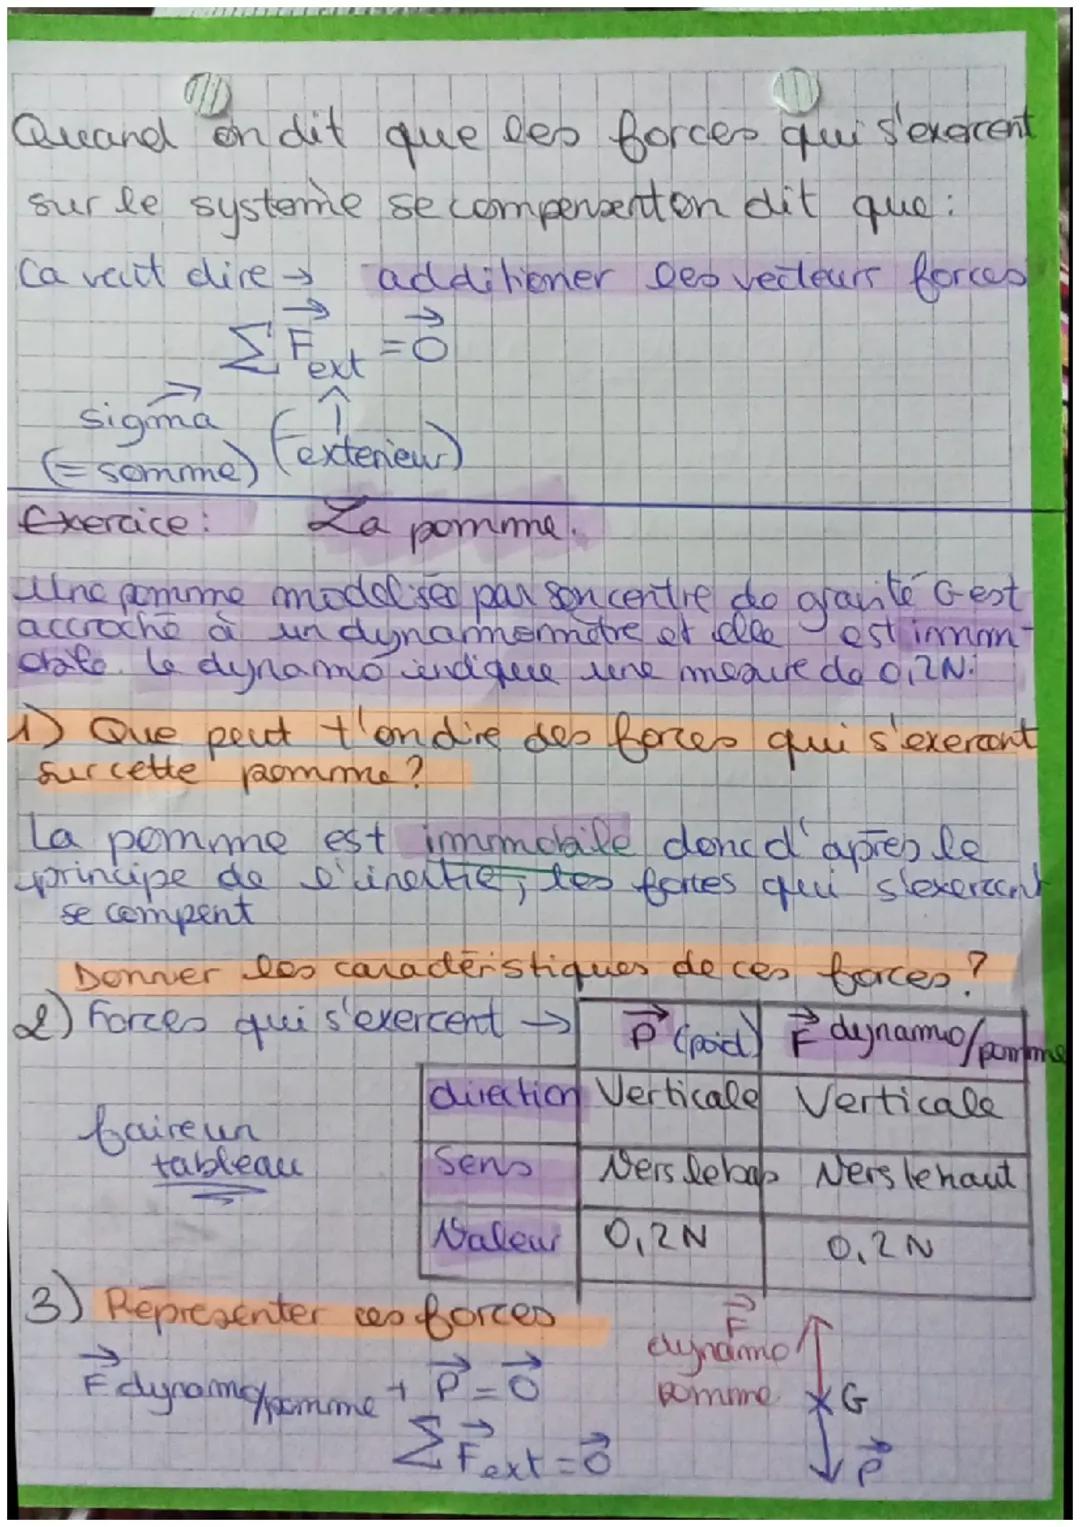 Quand on dit que les forces qui s'exercent
sur le système se compensent on dit que :
Ca veut dire → additioner les vecteurs forces
ΣF⃗ext = 0⃗
sigma
(= somme) (exterieur)
Exercice : La pomme.
Une pomme modelisée par son centre de gravité G est
accroché à un dynamomètre et elle est immo-
bile. Le dynamo indique une mesure de 0,2N.
1) Que peut t'on dire des forces qui s'exercent
sur cette pomme ?
La pomme est immobile donc d'après le
principe de l'inertie, les forces qui s'exercent
se compent
Donner les caractéristiques de ces forces ?
2) Forces qui s'exercent → P⃗ (poid) F⃗ dynamo/pomme
direction Verticale Verticale
faire un
tableau
Sens Vers le bas Vers le haut
Valeur 0,2N 0,2N
3) Représenter ces forces
F⃗ dynamo/pomme + P⃗ = 0⃗
ΣF⃗ext = 0⃗
F⃗
dynamo
pomme
G
P⃗